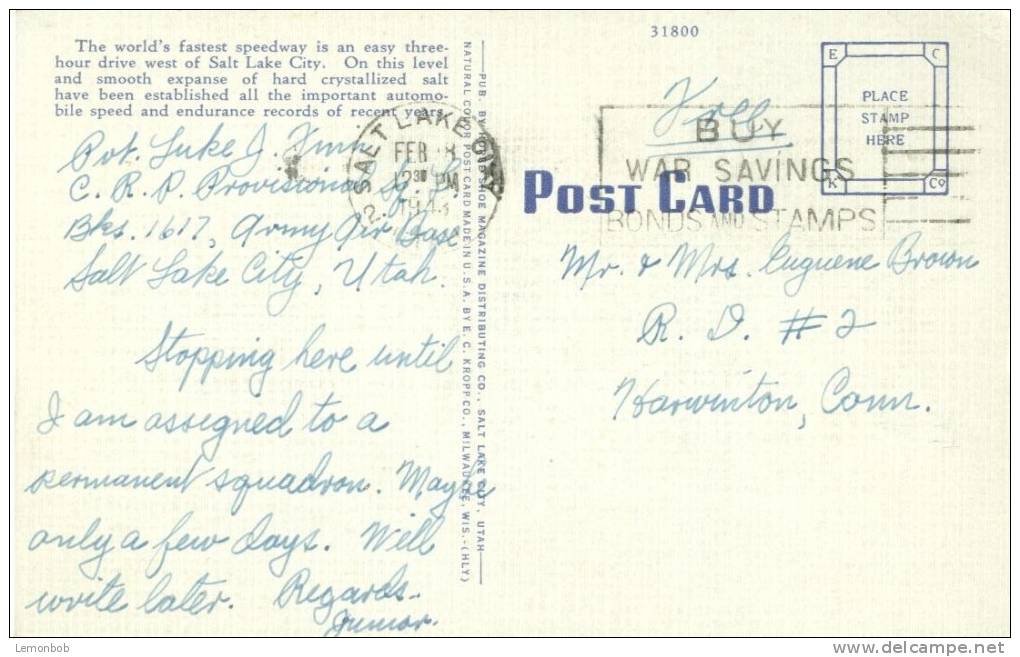 31800
The world's fastest speedway is an easy three-
hour drive west of Salt Lake City. On this level
and smooth expanse of hard crystallized salt
have been established all the important automo-
bile speed and endurance records of recent years.
Pvt. Luke J.
C. R. P. Provisional Sq.
Bks. 1617, Army Air Base
Salt Lake City, Utah.
Stopping here until
I am assigned to a
permanent squadron. Maybe
only a few days. Will
write later. Regards.
Junior.
PUB. BY DESERET SHOE MAGAZINE DISTRIBUTING CO., SALT LAKE CITY, UTAH
NATURAL COLOR POST CARD MADE IN U.S.A. BY E. C. KROPP CO., MILWAUKEE, WIS.-(HLY)
SALT LAKE CITY
FEB 8
12 30 PM
1943
2
BUY
WAR SAVINGS
BONDS AND STAMPS
E C
PLACE
STAMP
HERE
K Co
POST CARD
Mr. & Mrs. Euguene Brown
R. D. #2
Harwinton, Conn.
Lemonbob
delcampe.net